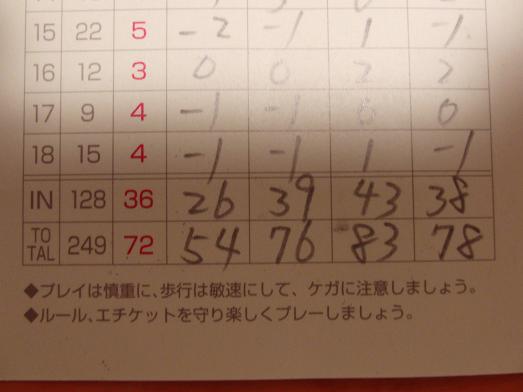 15 22 5 -2 -1 1 -1
16 12 3 0 0 2 2
17 9 4 -1 -1 0 0
18 15 4 -1 -1 1 -1
IN 128 36 26 39 43 38
TO TAL 249 72 54 76 83 78
◆プレイは慎重に、歩行は敏速にして、ケガに注意しましょう。
◆ルール、エチケットを守り楽しくプレーしましょう。